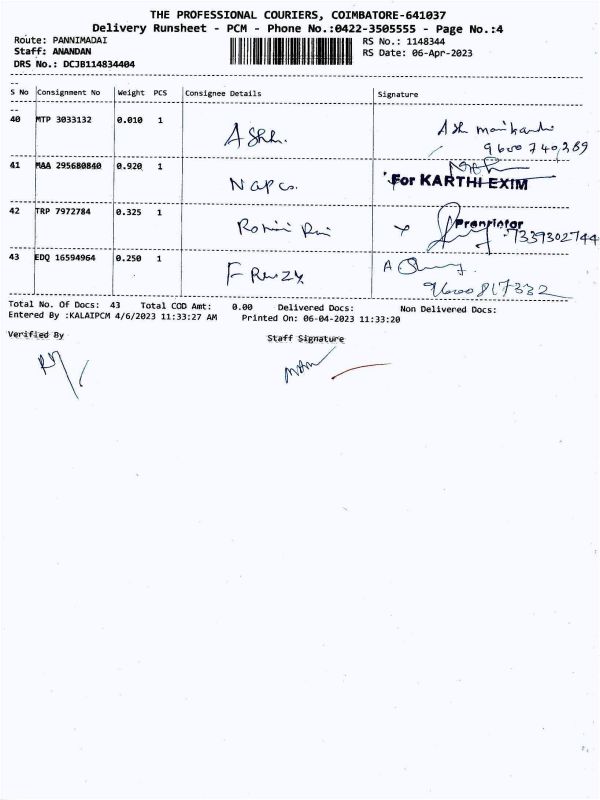 THE PROFESSIONAL COURIERS, COIMBATORE-641037
Delivery Runsheet - PCM - Phone No.:0422-3505555 - Page No.:4
Route: PANNIMADAI RS No.: 1148344
Staff: ANANDAN RS Date: 06-Apr-2023
DRS No.: DCJB114834404
S No Consignment No Weight PCS Consignee Details Signature
40 MTP 3033132 0.010 1
41 MAA 295680840 0.920 1 Napco.
For KARTHI EXIM
42 TRP 7972784 0.325 1
Proprietor
7339302744
43 EDQ 16594964 0.250 1
9600817332
Total No. Of Docs: 43 Total COD Amt: 0.00 Delivered Docs: Non Delivered Docs:
Entered By :KALAIPCM 4/6/2023 11:33:27 AM Printed On: 06-04-2023 11:33:20
Verified By Staff Signature